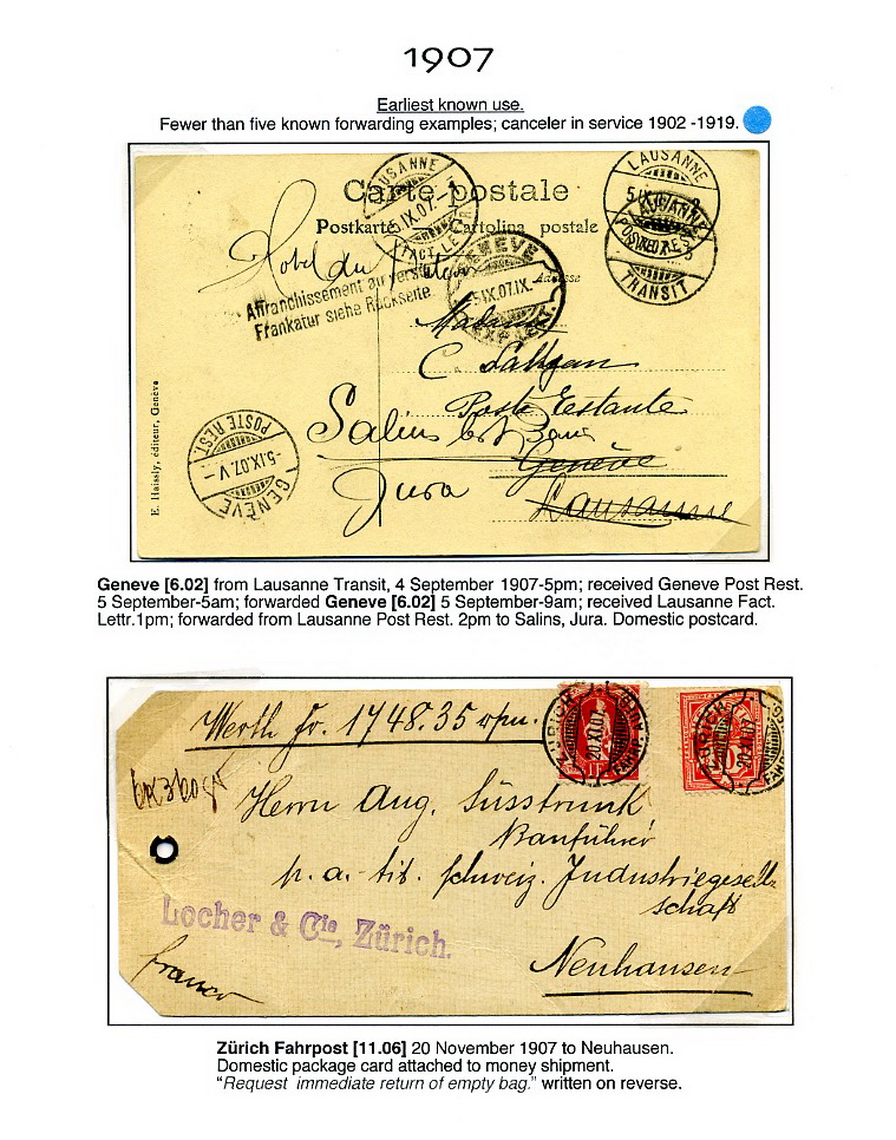 1907
Earliest known use.
Fewer than five known forwarding examples; canceler in service 1902 -1919.
LAUSANNE
5.IX.07.
FACT. LETTR.
LAUSANNE
5.IX
TRANSIT
LAUSANNE
POSTE REST.
Carte postale
Postkarte Cartolina postale
Adresse
Hotel du
Affranchissement au verso
Frankatur siehe Rückseite
GENÈVE
5.IX.07.IX.
Madame
C.
Poste Restante
Salins les Bains
Genève
Jura
Lausanne
E. Haissly, éditeur, Genève
POSTE REST.
-5.IX.07.V-
GENÈVE
Geneve [6.02] from Lausanne Transit, 4 September 1907-5pm; received Geneve Post Rest.
5 September-5am; forwarded Geneve [6.02] 5 September-9am; received Lausanne Fact.
Lettr.1pm; forwarded from Lausanne Post Rest. 2pm to Salins, Jura. Domestic postcard.
Werth Fr. 1748.35
ZÜRICH
20.XI.07.
FAHRP.
1 FR
ZÜRICH
20.XI.07
FAHRP.
10
Herrn Aug. Süsstrunk
Bauführer
p. a. tit. schweiz. Industriegesell-
schaft
Locher & Cie, Zürich.
Neuhausen
franco
Zürich Fahrpost [11.06] 20 November 1907 to Neuhausen.
Domestic package card attached to money shipment.
“Request immediate return of empty bag.” written on reverse.